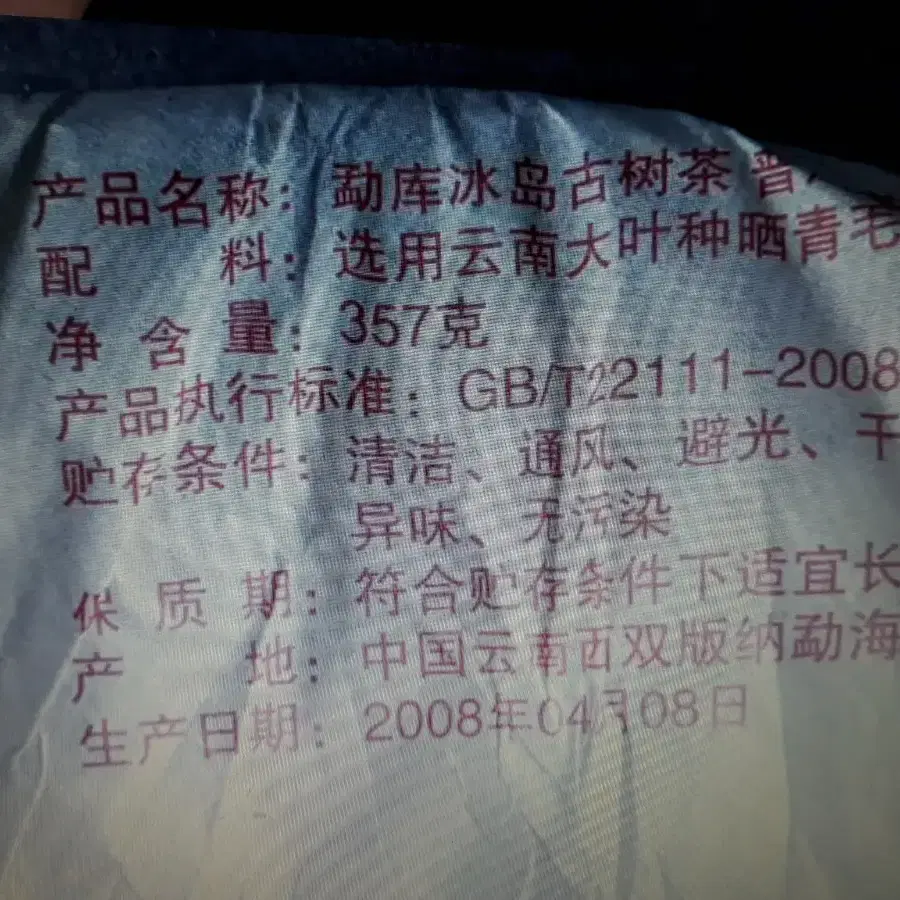 产品名称：勐库冰岛古树茶 普
配料：选用云南大叶种晒青毛
净含量：357克
产品执行标准：GB/T22111-2008
贮存条件：清洁、通风、避光、干
异味、无污染
保质期：符合贮存条件下适宜长
产地：中国云南西双版纳勐海
生产日期：2008年04月08日